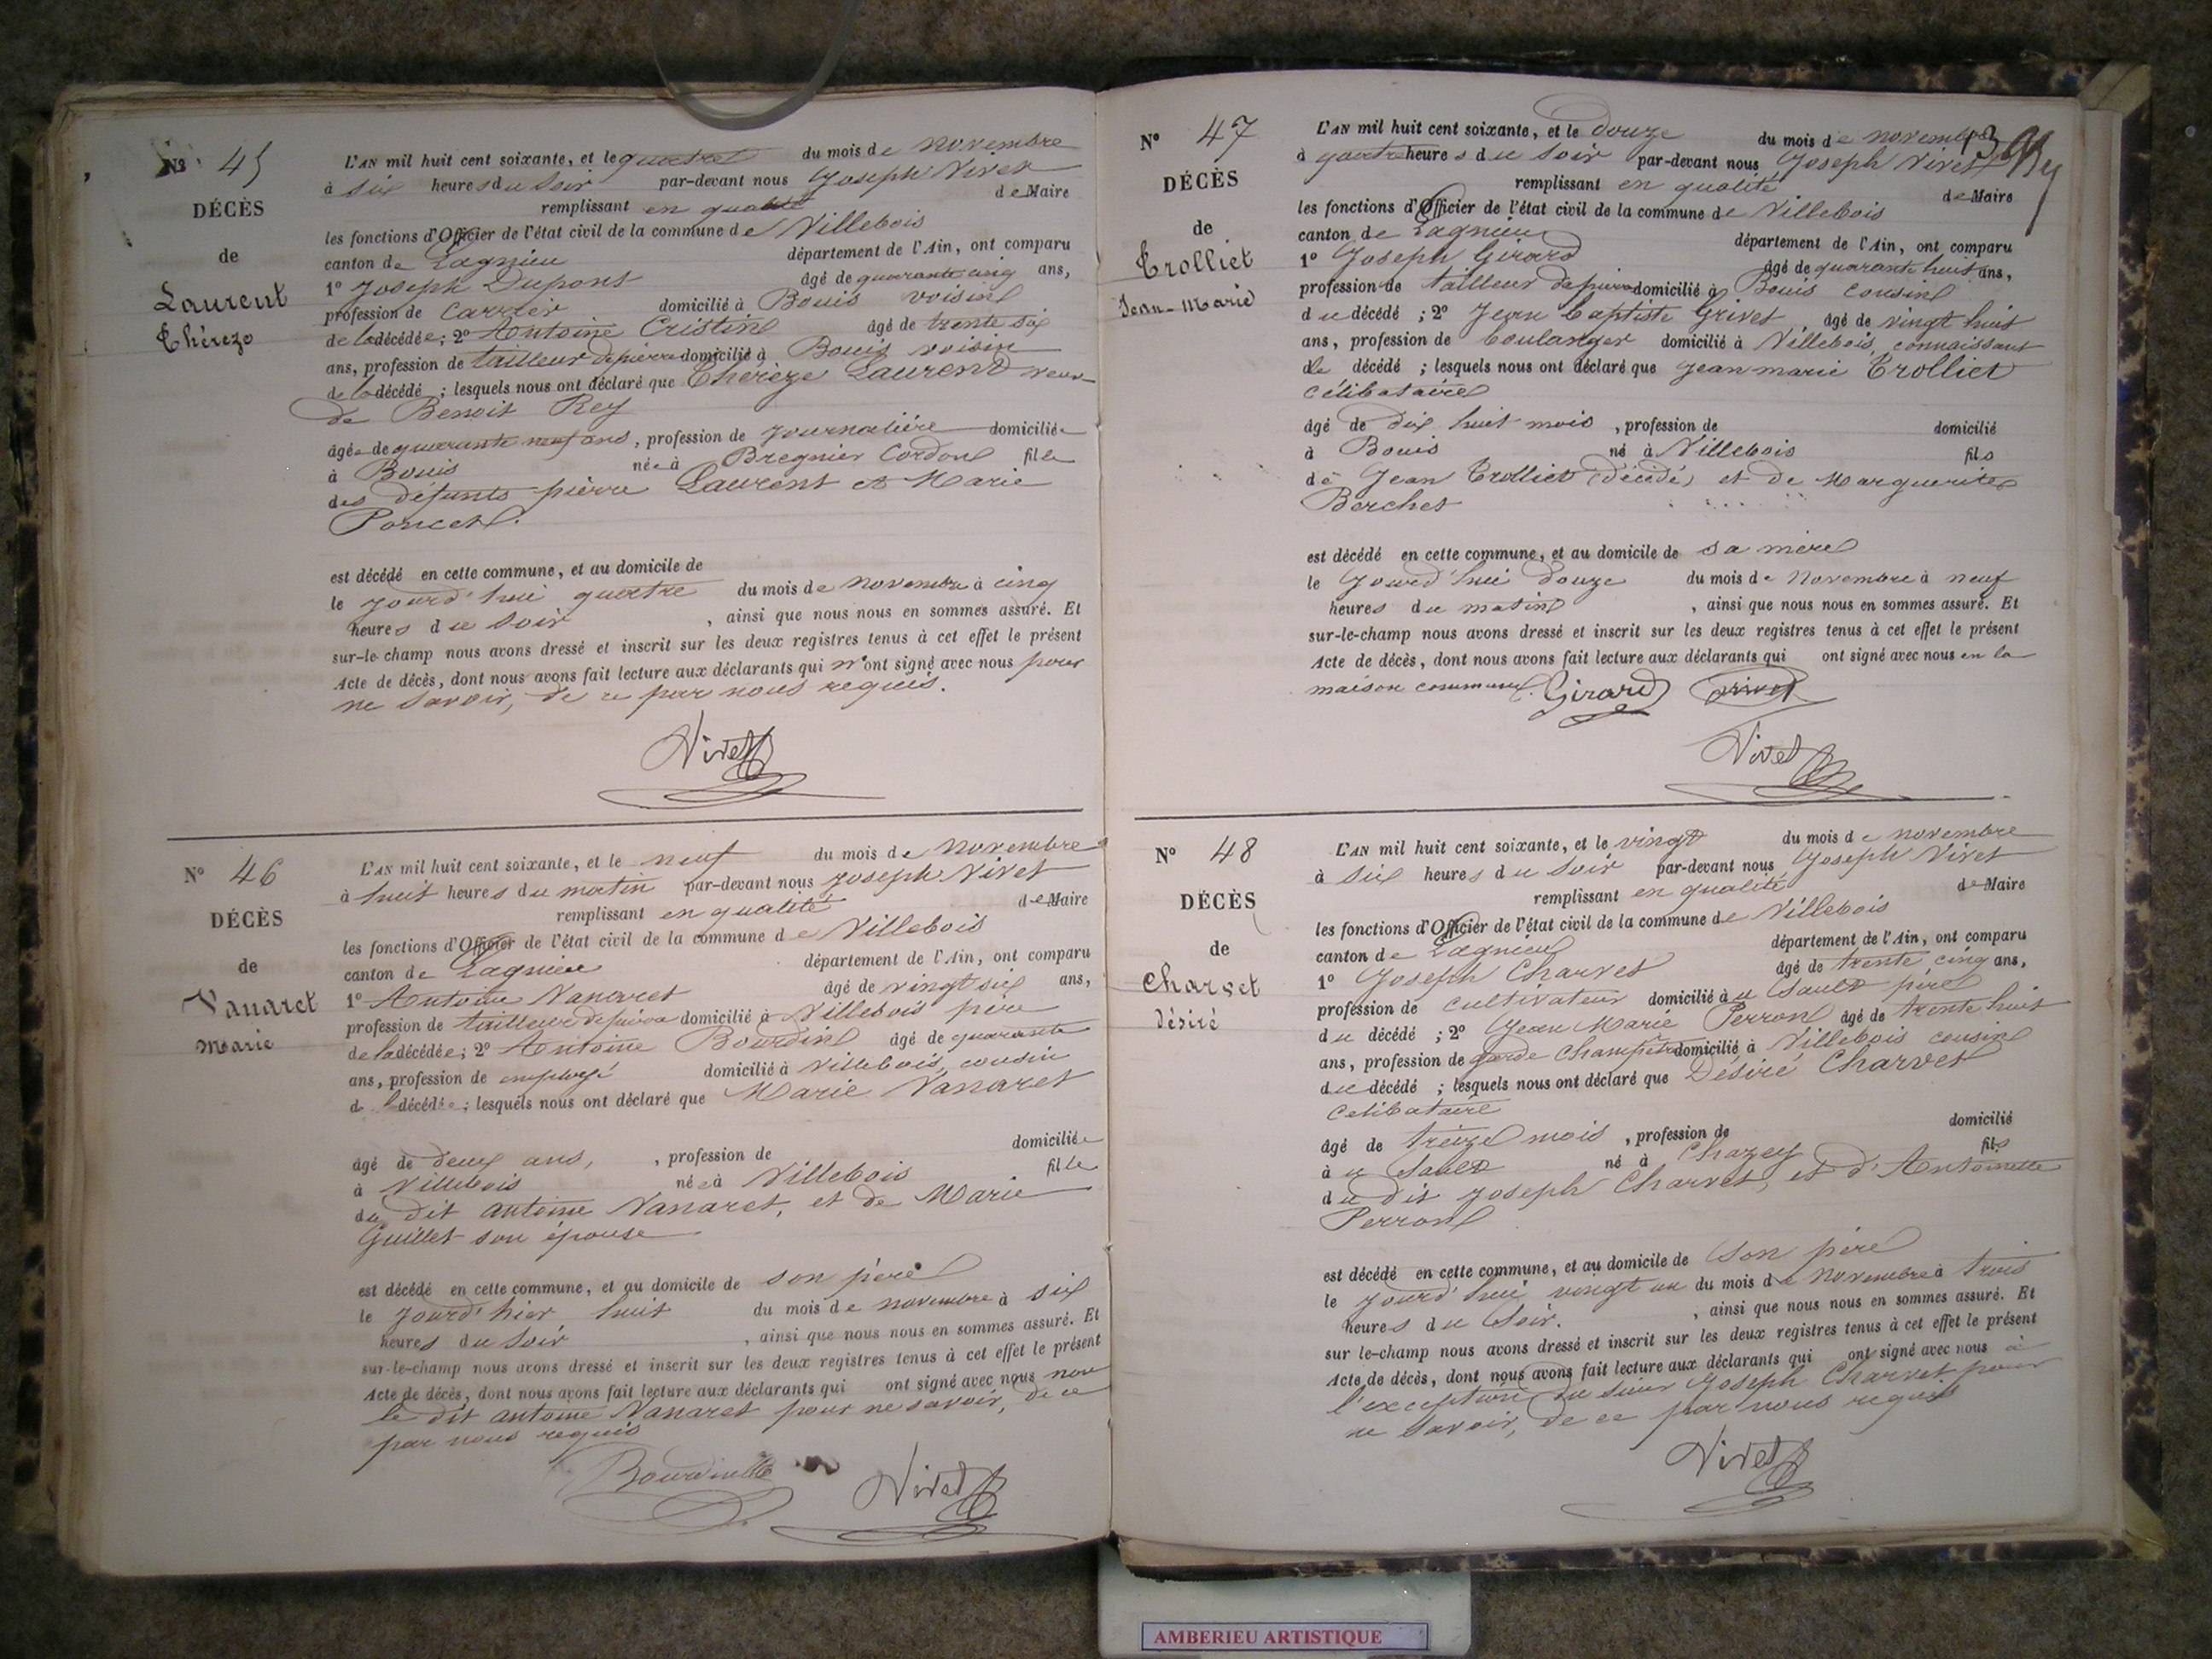 N° 45
DÉCÈS
de
Laurent
Thérèze
L'AN mil huit cent soixante, et le quatre du mois de novembre
à six heures du soir par-devant nous Joseph Vivet
remplissant en qualité de Maire
les fonctions d'Officier de l'état civil de la commune de Villebois
canton de Lagnieu département de l'Ain, ont comparu
1° Joseph Dupont âgé de quarante cinq ans,
profession de Carrier domicilié à Bouis voisin
de la décédée; 2° Antoine Cristin âgé de trente six
ans, profession de tailleur de pierre domicilié à Bouis voisin
de la décédé ; lesquels nous ont déclaré que Thérèze Laurent veuve
de Benoit Rey
âgée de quarante neuf ans, profession de journalière domiciliée
à Bouis née à Bregnier Cordon fille
des défunts pierre Laurent et Marie
Poncet.
est décédé en cette commune, et au domicile de
le jourd'hui quatre du mois de novembre à cinq
heures du soir , ainsi que nous nous en sommes assuré. Et
sur-le-champ nous avons dressé et inscrit sur les deux registres tenus à cet effet le présent
Acte de décès, dont nous avons fait lecture aux déclarants qui n'ont signé avec nous pour
ne savoir, de ce par nous requis.
Vivet
N° 46
DÉCÈS
de
Vanaret
Marie
L'AN mil huit cent soixante, et le neuf du mois de novembre
à huit heures du matin par-devant nous Joseph Vivet
remplissant en qualité de Maire
les fonctions d'Officier de l'état civil de la commune de Villebois
canton de Lagnieu département de l'Ain, ont comparu
1° Antoine Vanaret âgé de vingt six ans,
profession de tailleur de pierre domicilié à Villebois père
de la décédée; 2° Antoine Bourdin âgé de quarante
ans, profession de employé domicilié à Villebois, cousin
de l décédée; lesquels nous ont déclaré que Marie Vanaret
âgé de deux ans, , profession de domiciliée
à Villebois née à Villebois fille
du dit antoine Vanaret, et de Marie
Guillet son épouse
est décédé en cette commune, et au domicile de son père
le jourd'hier huit du mois de novembre à six
heures du soir , ainsi que nous nous en sommes assuré. Et
sur-le-champ nous avons dressé et inscrit sur les deux registres tenus à cet effet le présent
Acte de décès, dont nous avons fait lecture aux déclarants qui ont signé avec nous non
le dit antoine Vanaret pour ne savoir, de ce
par nous requis
Vivet
N° 47
DÉCÈS
de
Trolliet
Jean-Marie
L'AN mil huit cent soixante, et le douze du mois de novembre
à quatre heures du soir par-devant nous Joseph Vivet
remplissant en qualité de Maire
les fonctions d'Officier de l'état civil de la commune de Villebois
canton de Lagnieu département de l'Ain, ont comparu
1° Joseph Girard âgé de quarante huit ans,
profession de tailleur de pierre domicilié à Bouis cousin
du décédé ; 2° Jean baptiste Grivet, âgé de vingt huit
ans, profession de boulanger domicilié à Villebois, connaissant
le décédé ; lesquels nous ont déclaré que jean marie Trolliet
célibataire
âgé de dix huit mois , profession de domicilié
à Bouis né à Villebois fils
de Jean Trolliet (décédé) et de Marguerite
Berchet
est décédé en cette commune, et au domicile de sa mère
le jourd'hui douze du mois de novembre à neuf
heures du matin , ainsi que nous nous en sommes assuré. Et
sur-le-champ nous avons dressé et inscrit sur les deux registres tenus à cet effet le présent
Acte de décès, dont nous avons fait lecture aux déclarants qui ont signé avec nous en la
maison commune. Girard Grivet
Vivet
N° 48
DÉCÈS
de
Charvet
Désiré
L'AN mil huit cent soixante, et le vingt du mois de novembre
à six heures du soir par-devant nous Joseph Vivet
remplissant en qualité de Maire
les fonctions d'Officier de l'état civil de la commune de Villebois
canton de Lagnieu département de l'Ain, ont comparu
1° Joseph Charvet âgé de trente cinq ans,
profession de cultivateur domicilié à père
du décédé ; 2° Jean Marie Perron âgé de trente huit
ans, profession de garde champêtre domicilié à Villebois cousin
du décédé ; lesquels nous ont déclaré que Désiré Charvet
célibataire
âgé de treize mois , profession de domicilié
à né à Chazey fils
du dit joseph Charvet, et d'Antoinette
Perron
est décédé en cette commune, et au domicile de son père
le jourd'hui vingt un du mois de novembre à trois
heures du soir. , ainsi que nous nous en sommes assuré. Et
sur le-champ nous avons dressé et inscrit sur les deux registres tenus à cet effet le présent
Acte de décès, dont nous avons fait lecture aux déclarants qui ont signé avec nous à
l'exception du sieur Joseph Charvet pour
ne savoir, de ce par nous requis
Vivet
AMBERIEU ARTISTIQUE